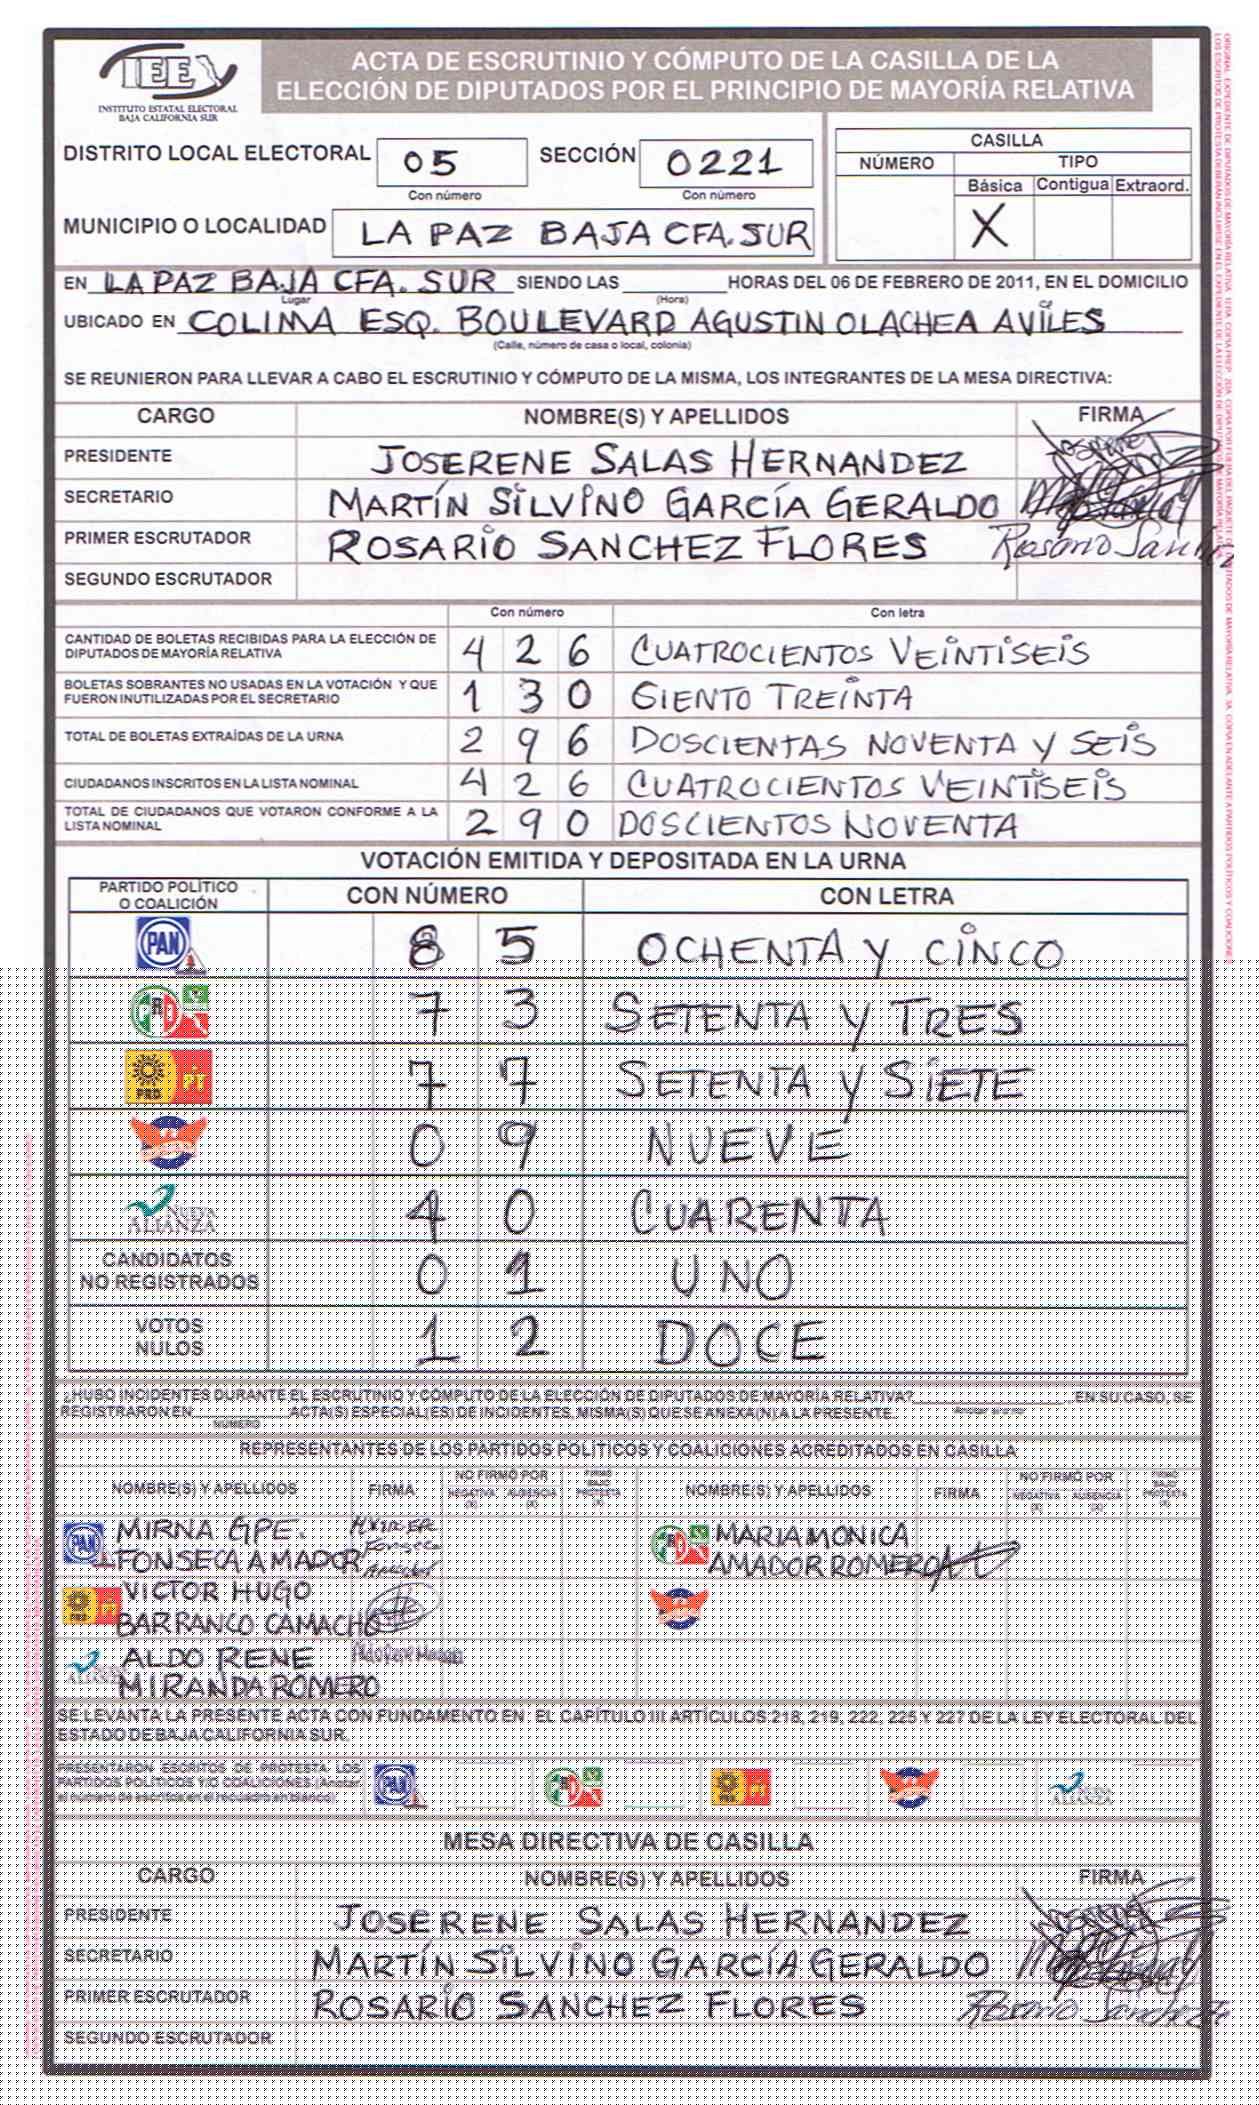 IEE
INSTITUTO ESTATAL ELECTORAL
BAJA CALIFORNIA SUR
ACTA DE ESCRUTINIO Y CÓMPUTO DE LA CASILLA DE LA
ELECCIÓN DE DIPUTADOS POR EL PRINCIPIO DE MAYORÍA RELATIVA
DISTRITO LOCAL ELECTORAL 05 SECCIÓN 0221
Con número Con número
MUNICIPIO O LOCALIDAD LA PAZ BAJA CFA. SUR
CASILLA
NÚMERO TIPO
Básica Contigua Extraord.
X
EN LA PAZ BAJA CFA. SUR SIENDO LAS HORAS DEL 06 DE FEBRERO DE 2011, EN EL DOMICILIO
Lugar (Hora)
UBICADO EN COLIMA ESQ. BOULEVARD AGUSTIN OLACHEA AVILES
(Calle, número de casa o local, colonia)
SE REUNIERON PARA LLEVAR A CABO EL ESCRUTINIO Y CÓMPUTO DE LA MISMA, LOS INTEGRANTES DE LA MESA DIRECTIVA:
CARGO NOMBRE(S) Y APELLIDOS FIRMA
PRESIDENTE JOSERENE SALAS HERNANDEZ
SECRETARIO MARTÍN SILVINO GARCÍA GERALDO
PRIMER ESCRUTADOR ROSARIO SANCHEZ FLORES Rosario Sanchez
SEGUNDO ESCRUTADOR
Con número Con letra
CANTIDAD DE BOLETAS RECIBIDAS PARA LA ELECCIÓN DE
DIPUTADOS DE MAYORÍA RELATIVA 4 2 6 CUATROCIENTOS VEINTISEIS
BOLETAS SOBRANTES NO USADAS EN LA VOTACIÓN Y QUE
FUERON INUTILIZADAS POR EL SECRETARIO 1 3 0 CIENTO TREINTA
TOTAL DE BOLETAS EXTRAÍDAS DE LA URNA 2 9 6 DOSCIENTAS NOVENTA Y SEIS
CIUDADANOS INSCRITOS EN LA LISTA NOMINAL 4 2 6 CUATROCIENTOS VEINTISEIS
TOTAL DE CIUDADANOS QUE VOTARON CONFORME A LA
LISTA NOMINAL 2 9 0 DOSCIENTOS NOVENTA
VOTACIÓN EMITIDA Y DEPOSITADA EN LA URNA
PARTIDO POLÍTICO
O COALICIÓN CON NÚMERO CON LETRA
PAN 8 5 OCHENTA Y CINCO
PRI 7 3 SETENTA Y TRES
PRD PT 7 7 SETENTA Y SIETE
0 9 NUEVE
NUEVA
ALIANZA 4 0 CUARENTA
CANDIDATOS
NO REGISTRADOS 0 1 UNO
VOTOS
NULOS 1 2 DOCE
¿HUBO INCIDENTES DURANTE EL ESCRUTINIO Y CÓMPUTO DE LA ELECCIÓN DE DIPUTADOS DE MAYORÍA RELATIVA? EN SU CASO, SE
REGISTRARON EN ACTA(S) ESPECIAL(ES) DE INCIDENTES, MISMA(S) QUE SE ANEXA(N) A LA PRESENTE.
NÚMERO
REPRESENTANTES DE LOS PARTIDOS POLÍTICOS Y COALICIONES ACREDITADOS EN CASILLA
NOMBRE(S) Y APELLIDOS FIRMA NO FIRMÓ POR FIRMÓ BAJO PROTESTA (X) NOMBRE(S) Y APELLIDOS FIRMA NO FIRMÓ POR FIRMÓ BAJO PROTESTA (X)
NEGATIVA (X) AUSENCIA (X) NEGATIVA (X) AUSENCIA (X)
PAN MIRNA GPE. PRI MARIA MONICA
FONSECA AMADOR Fonseca Amador AMADOR ROMERO
PRD PT VICTOR HUGO
BARRANCO CAMACHO
ALIANZA ALDO RENE Aldo Rene Miranda
MIRANDA ROMERO
SE LEVANTA LA PRESENTE ACTA CON FUNDAMENTO EN : EL CAPÍTULO III ARTÍCULOS 218, 219, 222, 225 Y 227 DE LA LEY ELECTORAL DEL
ESTADO DE BAJA CALIFORNIA SUR.
PRESENTARON ESCRITOS DE PROTESTA LOS
PARTIDOS POLÍTICOS Y/O COALICIONES (Anotar
el número de escritos en el recuadro en blanco) PAN PRI PRD PT ALIANZA
MESA DIRECTIVA DE CASILLA
CARGO NOMBRE(S) Y APELLIDOS FIRMA
PRESIDENTE JOSERENE SALAS HERNANDEZ
SECRETARIO MARTÍN SILVINO GARCÍA GERALDO
PRIMER ESCRUTADOR ROSARIO SANCHEZ FLORES Rosario Sanchez
SEGUNDO ESCRUTADOR